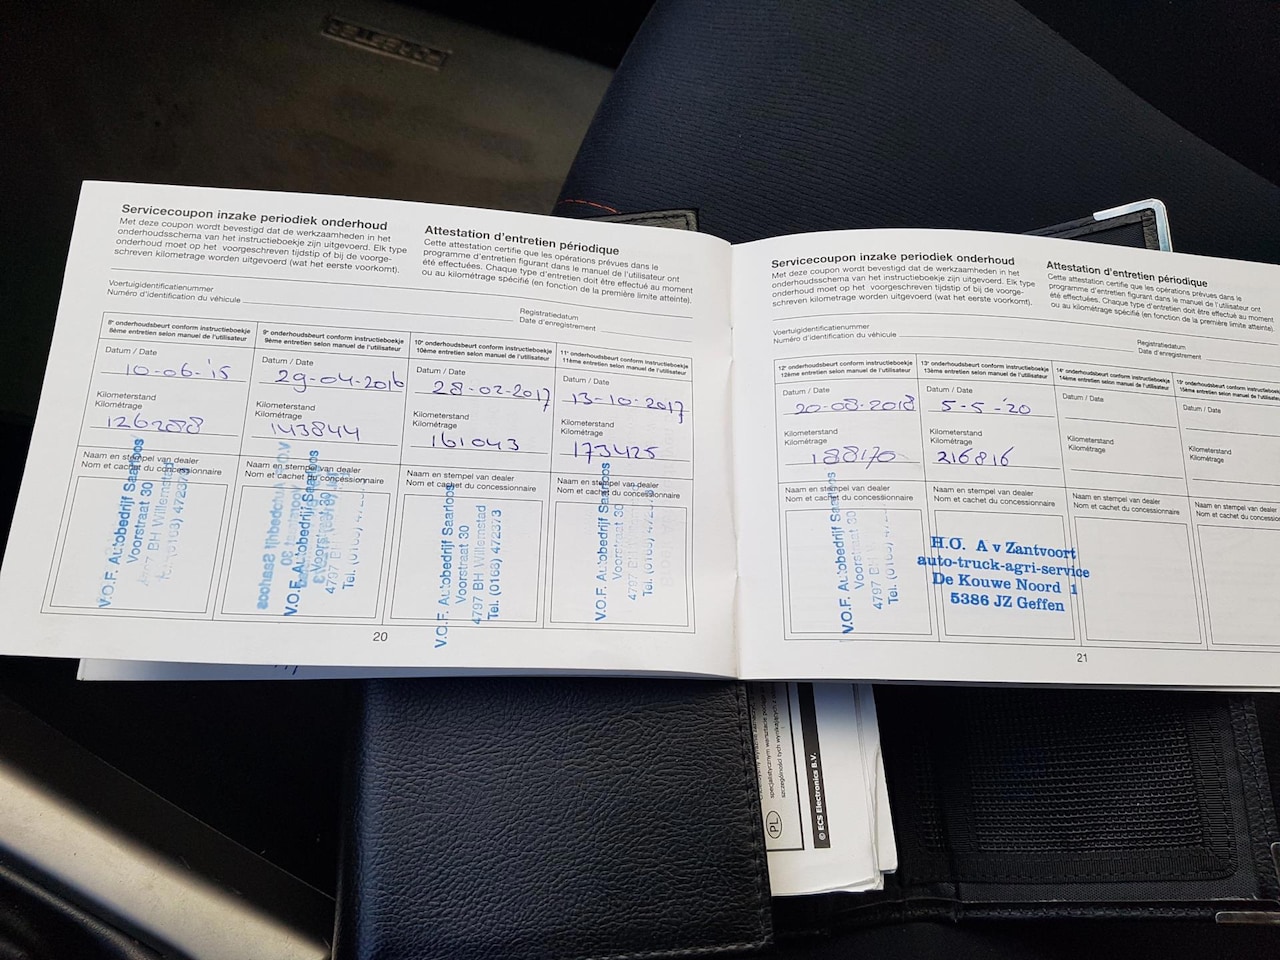 Servicecoupon inzake periodiek onderhoud
Met deze coupon wordt bevestigd dat de werkzaamheden in het
onderhoudsschema van het instructieboekje zijn uitgevoerd. Elk type
onderhoud moet op het voorgeschreven tijdstip of bij de voorge-
schreven kilometrage worden uitgevoerd (wat het eerste voorkomt).
Attestation d'entretien périodique
Cette attestation certifie que les opérations prévues dans le
programme d'entretien figurant dans le manuel de l'utilisateur ont
été effectuées. Chaque type d'entretien doit être effectué au moment
ou au kilométrage spécifié (en fonction de la première limite atteinte).
Voertuigidentificatienummer
Numéro d'identification du véhicule
Registratiedatum
Date d'enregistrement
8e onderhoudsbeurt conform instructieboekje
8ème entretien selon manuel de l'utilisateur
Datum / Date
10-06-'15
Kilometerstand
Kilométrage
Naam en stempel van dealer
Nom et cachet du concessionnaire
V.O.F. Autobedrijf Saarloos
Voorstraat 30
4797 BH Willemstad
Tel. (0168) 472373
9e onderhoudsbeurt conform instructieboekje
9ème entretien selon manuel de l'utilisateur
Datum / Date
29-04-2016
Kilometerstand
Kilométrage
143844
Naam en stempel van dealer
Nom et cachet du concessionnaire
V.O.F. Autobedrijf Saarloos
Voorstraat 30
4797 BH
Tel. (0168)
10e onderhoudsbeurt conform instructieboekje
10ème entretien selon manuel de l'utilisateur
Datum / Date
28-02-2017
Kilometerstand
Kilométrage
161043
Naam en stempel van dealer
Nom et cachet du concessionnaire
V.O.F. Autobedrijf Saarloos
Voorstraat 30
4797 BH Willemstad
Tel. (0168) 472373
11e onderhoudsbeurt conform instructieboekje
11ème entretien selon manuel de l'utilisateur
Datum / Date
13-10-2017
Kilometerstand
Kilométrage
173425
Naam en stempel van dealer
Nom et cachet du concessionnaire
V.O.F. Autobedrijf Saarloos
Voorstraat 30
4797 BH
Tel. (0168)
20
Servicecoupon inzake periodiek onderhoud
Met deze coupon wordt bevestigd dat de werkzaamheden in het
onderhoudsschema van het instructieboekje zijn uitgevoerd. Elk type
onderhoud moet op het voorgeschreven tijdstip of bij de voorge-
schreven kilometrage worden uitgevoerd (wat het eerste voorkomt).
Attestation d'entretien périodique
Cette attestation certifie que les opérations prévues dans le
programme d'entretien figurant dans le manuel de l'utilisateur ont
été effectuées. Chaque type d'entretien doit être effectué au moment
ou au kilométrage spécifié (en fonction de la première limite atteinte).
Voertuigidentificatienummer
Numéro d'identification du véhicule
Registratiedatum
Date d'enregistrement
12e onderhoudsbeurt conform instructieboekje
12ème entretien selon manuel de l'utilisateur
Datum / Date
20-08-2018
Kilometerstand
Kilométrage
188170
Naam en stempel van dealer
Nom et cachet du concessionnaire
V.O.F. Autobedrijf Saarloos
Voorstraat 30
4797 BH
Tel. (0168)
13e onderhoudsbeurt conform instructieboekje
13ème entretien selon manuel de l'utilisateur
Datum / Date
5-5-'20
Kilometerstand
Kilométrage
216816
Naam en stempel van dealer
Nom et cachet du concessionnaire
H.O. A v Zantvoort
auto-truck-agri-service
De Kouwe Noord 1
5386 JZ Geffen
14e onderhoudsbeurt conform instructieboekje
14ème entretien selon manuel de l'utilisateur
Datum / Date
Kilometerstand
Kilométrage
Naam en stempel van dealer
Nom et cachet du concessionnaire
15e onderhoudsbeurt conform
15ème entretien selon manuel de
Datum / Date
Kilometerstand
Kilométrage
Naam en stempel van dealer
Nom et cachet du
21
PL
© ECS Electronics B.V.